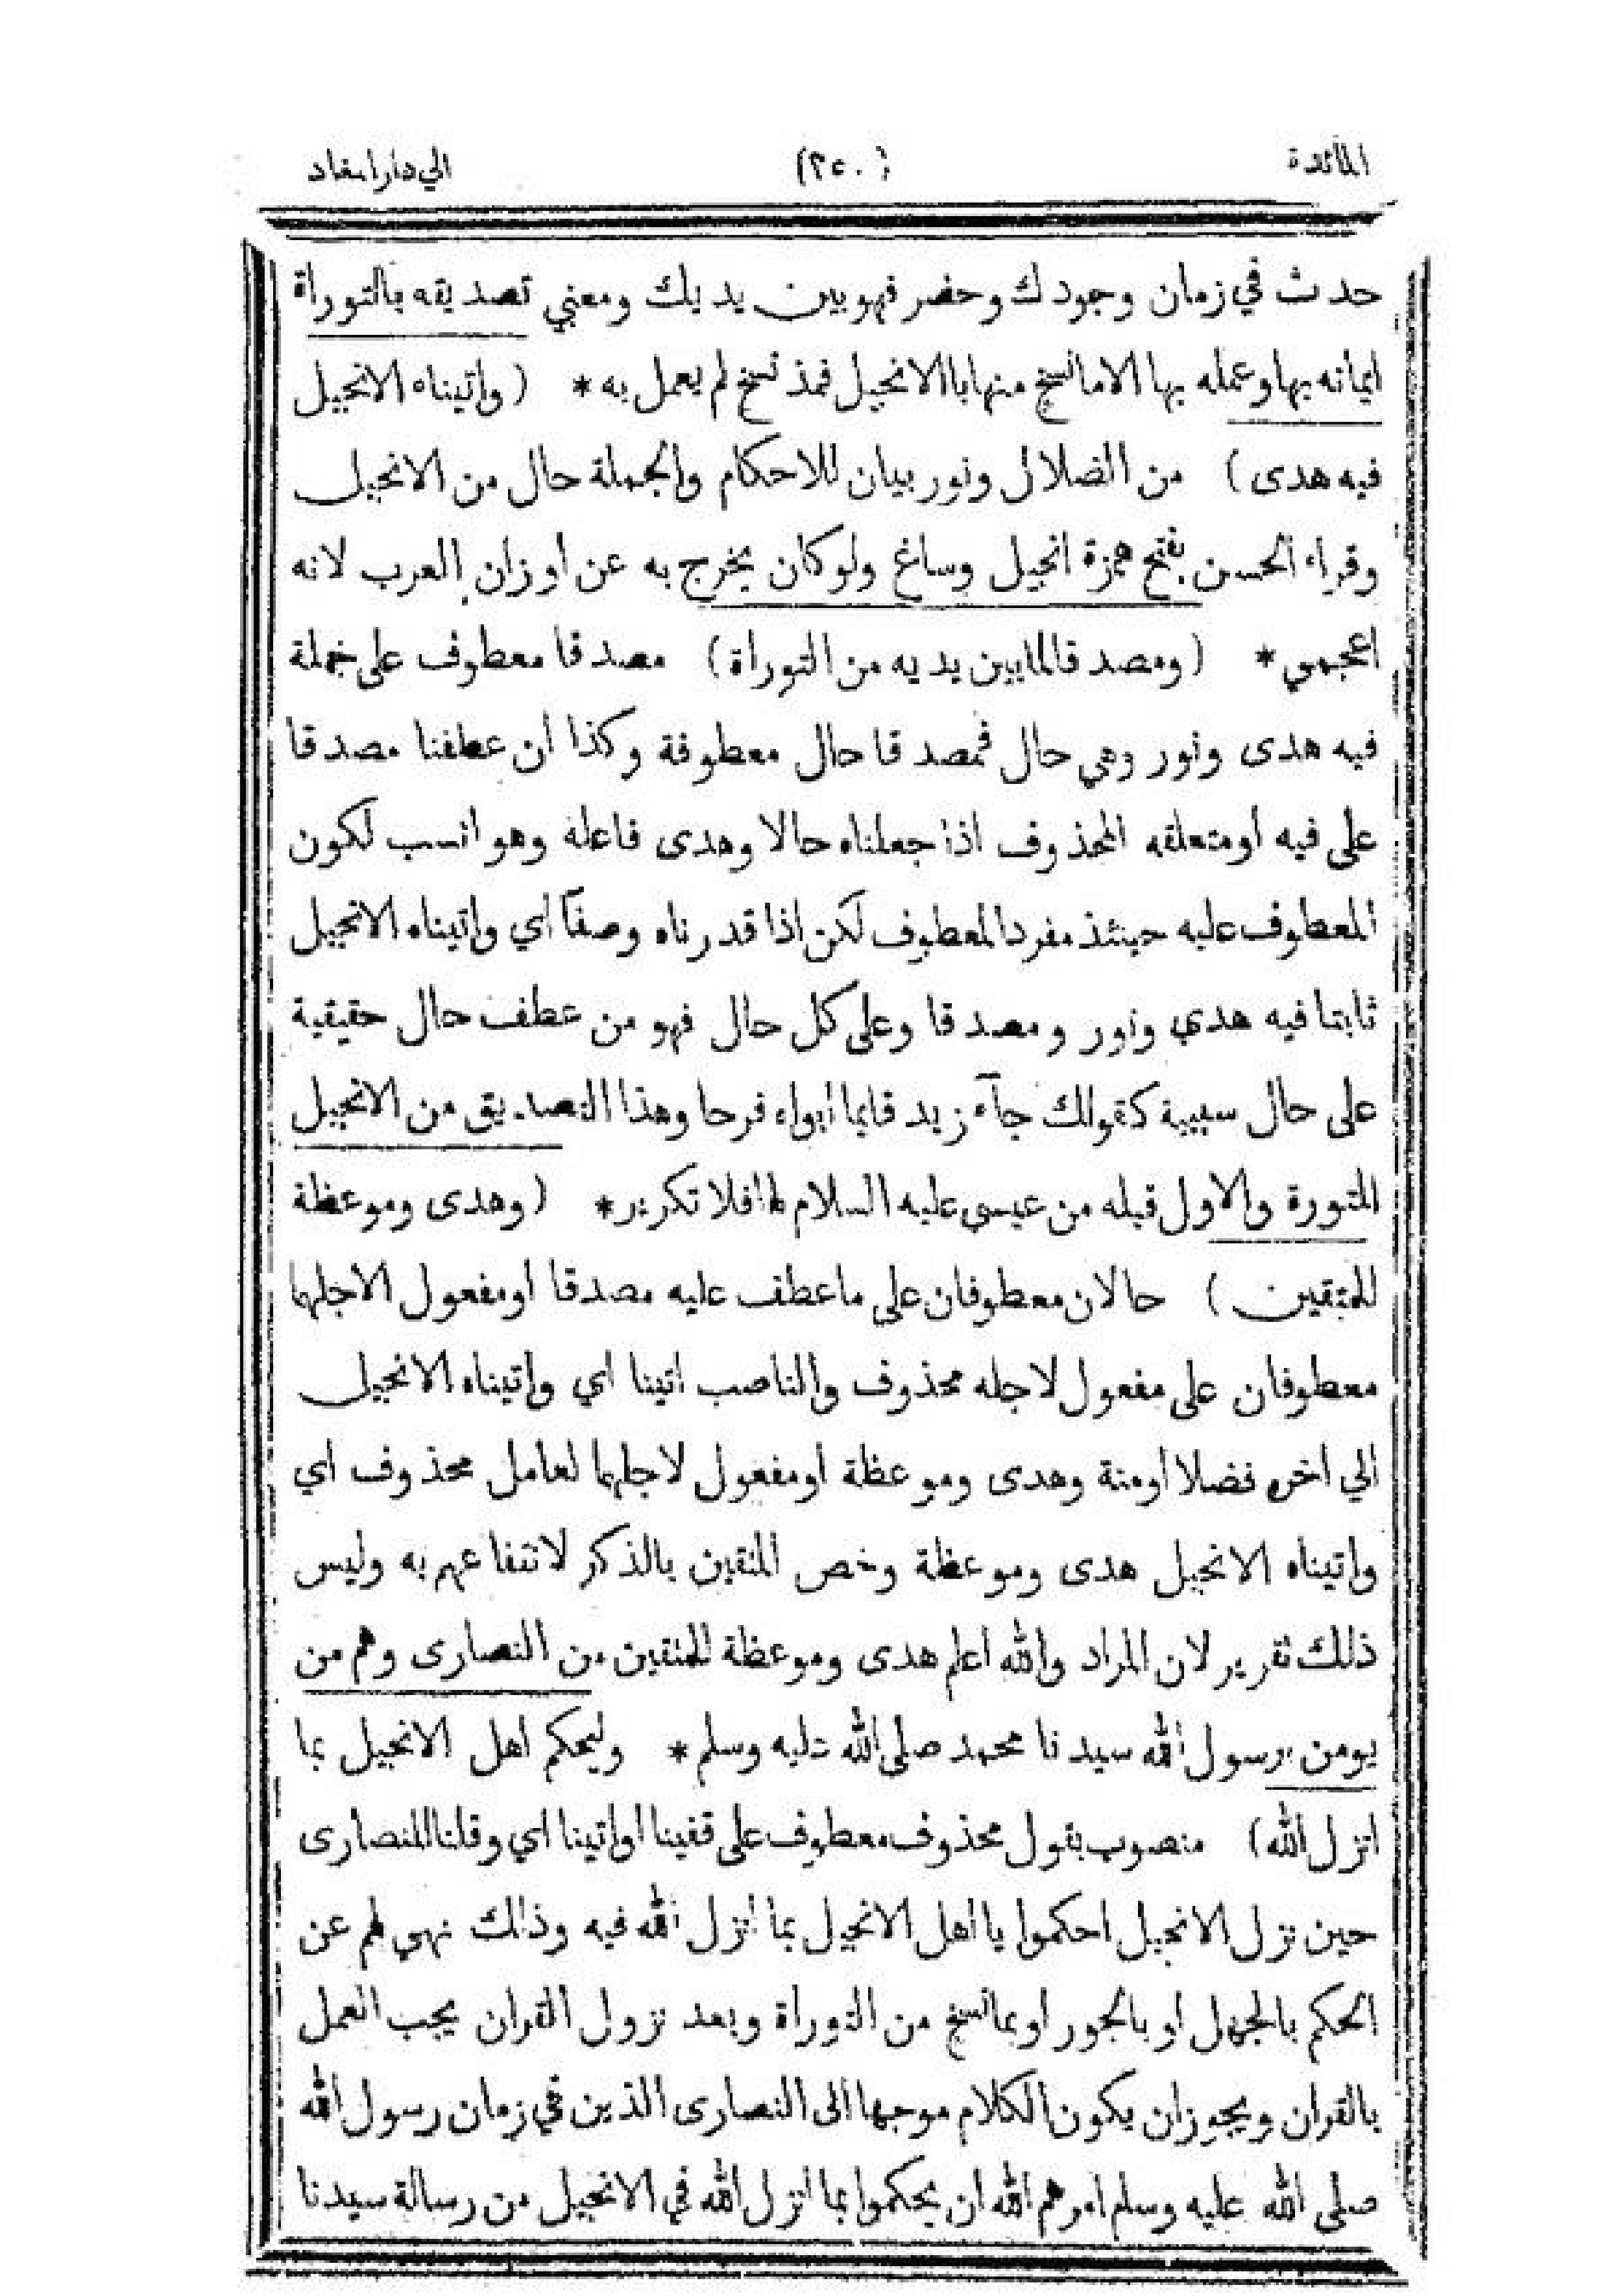 المائدة (٢٥٠) الي دار المعاد
حدث في زمان وجودك وحضر فهو بين يديك ومعني تصديقه بالتوراة
ايمانه بها وعمله بها الا ما نسخ منها با الانجيل فمذ نسخ لم يعمل به * ( واتيناه الانجيل
فيه هدى ) من الضلال ونور بيان للاحكام والجملة حال من الانجيل
وقراء الحسن بفتح همزة انجيل وساغ ولو كان يخرج به عن اوزان العرب لانه
اعجمي * ( ومصدقا لما بين يديه من التوراة ) مصدقا معطوف على جملة
فيه هدى ونور وهي حال فمصدقا حال معطوفة وكذا ان عطفنا مصدقا
على فيه او متعلقه المحذوف اذا جعلناه حالا وهدى فاعله وهو انسب لكون
المعطوف عليه حينئذ مفردا لمعطوف لكن اذا قدرناه وصفا اي واتيناه الانجيل
ثابتا فيه هدي ونور ومصدقا وعلى كل حال فهو من عطف حال حقيقية
على حال سببية كقولك جآء زيد قايما ابواه فرحا وهذا التصديق من الانجيل
للتورة والاول قبله من عيسى عليه السلام لها فلا تكرير * ( وهدى وموعظة
للمتقين ) حالان معطوفان على ما عطف عليه مصدقا او مفعول لاجلهما
معطوفان على مفعول لاجله محذوف والناصب اتينا اي واتيناه الانجيل
الي اخره فضلا او منة وهدى وموعظة او مفعول لاجلهما لعامل محذوف اي
واتيناه الانجيل هدى وموعظة وخص المتقين بالذكر لانتفاعهم به وليس
ذلك تقرير لان المراد والله اعلم هدى وموعظة للمتقين من النصارى وهم من
يومن برسول الله سيدنا محمد صلى الله عليه وسلم * وليحكم اهل الانجيل بما
انزل الله ) منصوب بقول محذوف معطوف على قفينا او اتينا اي وقلنا للنصارى
حين نزل الانجيل احكموا يا اهل الانجيل بما انزل الله فيه وذلك نهى لهم عن
الحكم بالجهل او بالجور او بما نسخ من التوراة وبعد نزول القران يجب العمل
بالقران ويجوز ان يكون الكلام موجها الى النصارى الذين في زمان رسول الله
صلى الله عليه وسلم امرهم الله ان يحكموا بما انزل الله في الانجيل من رسالة سيدنا